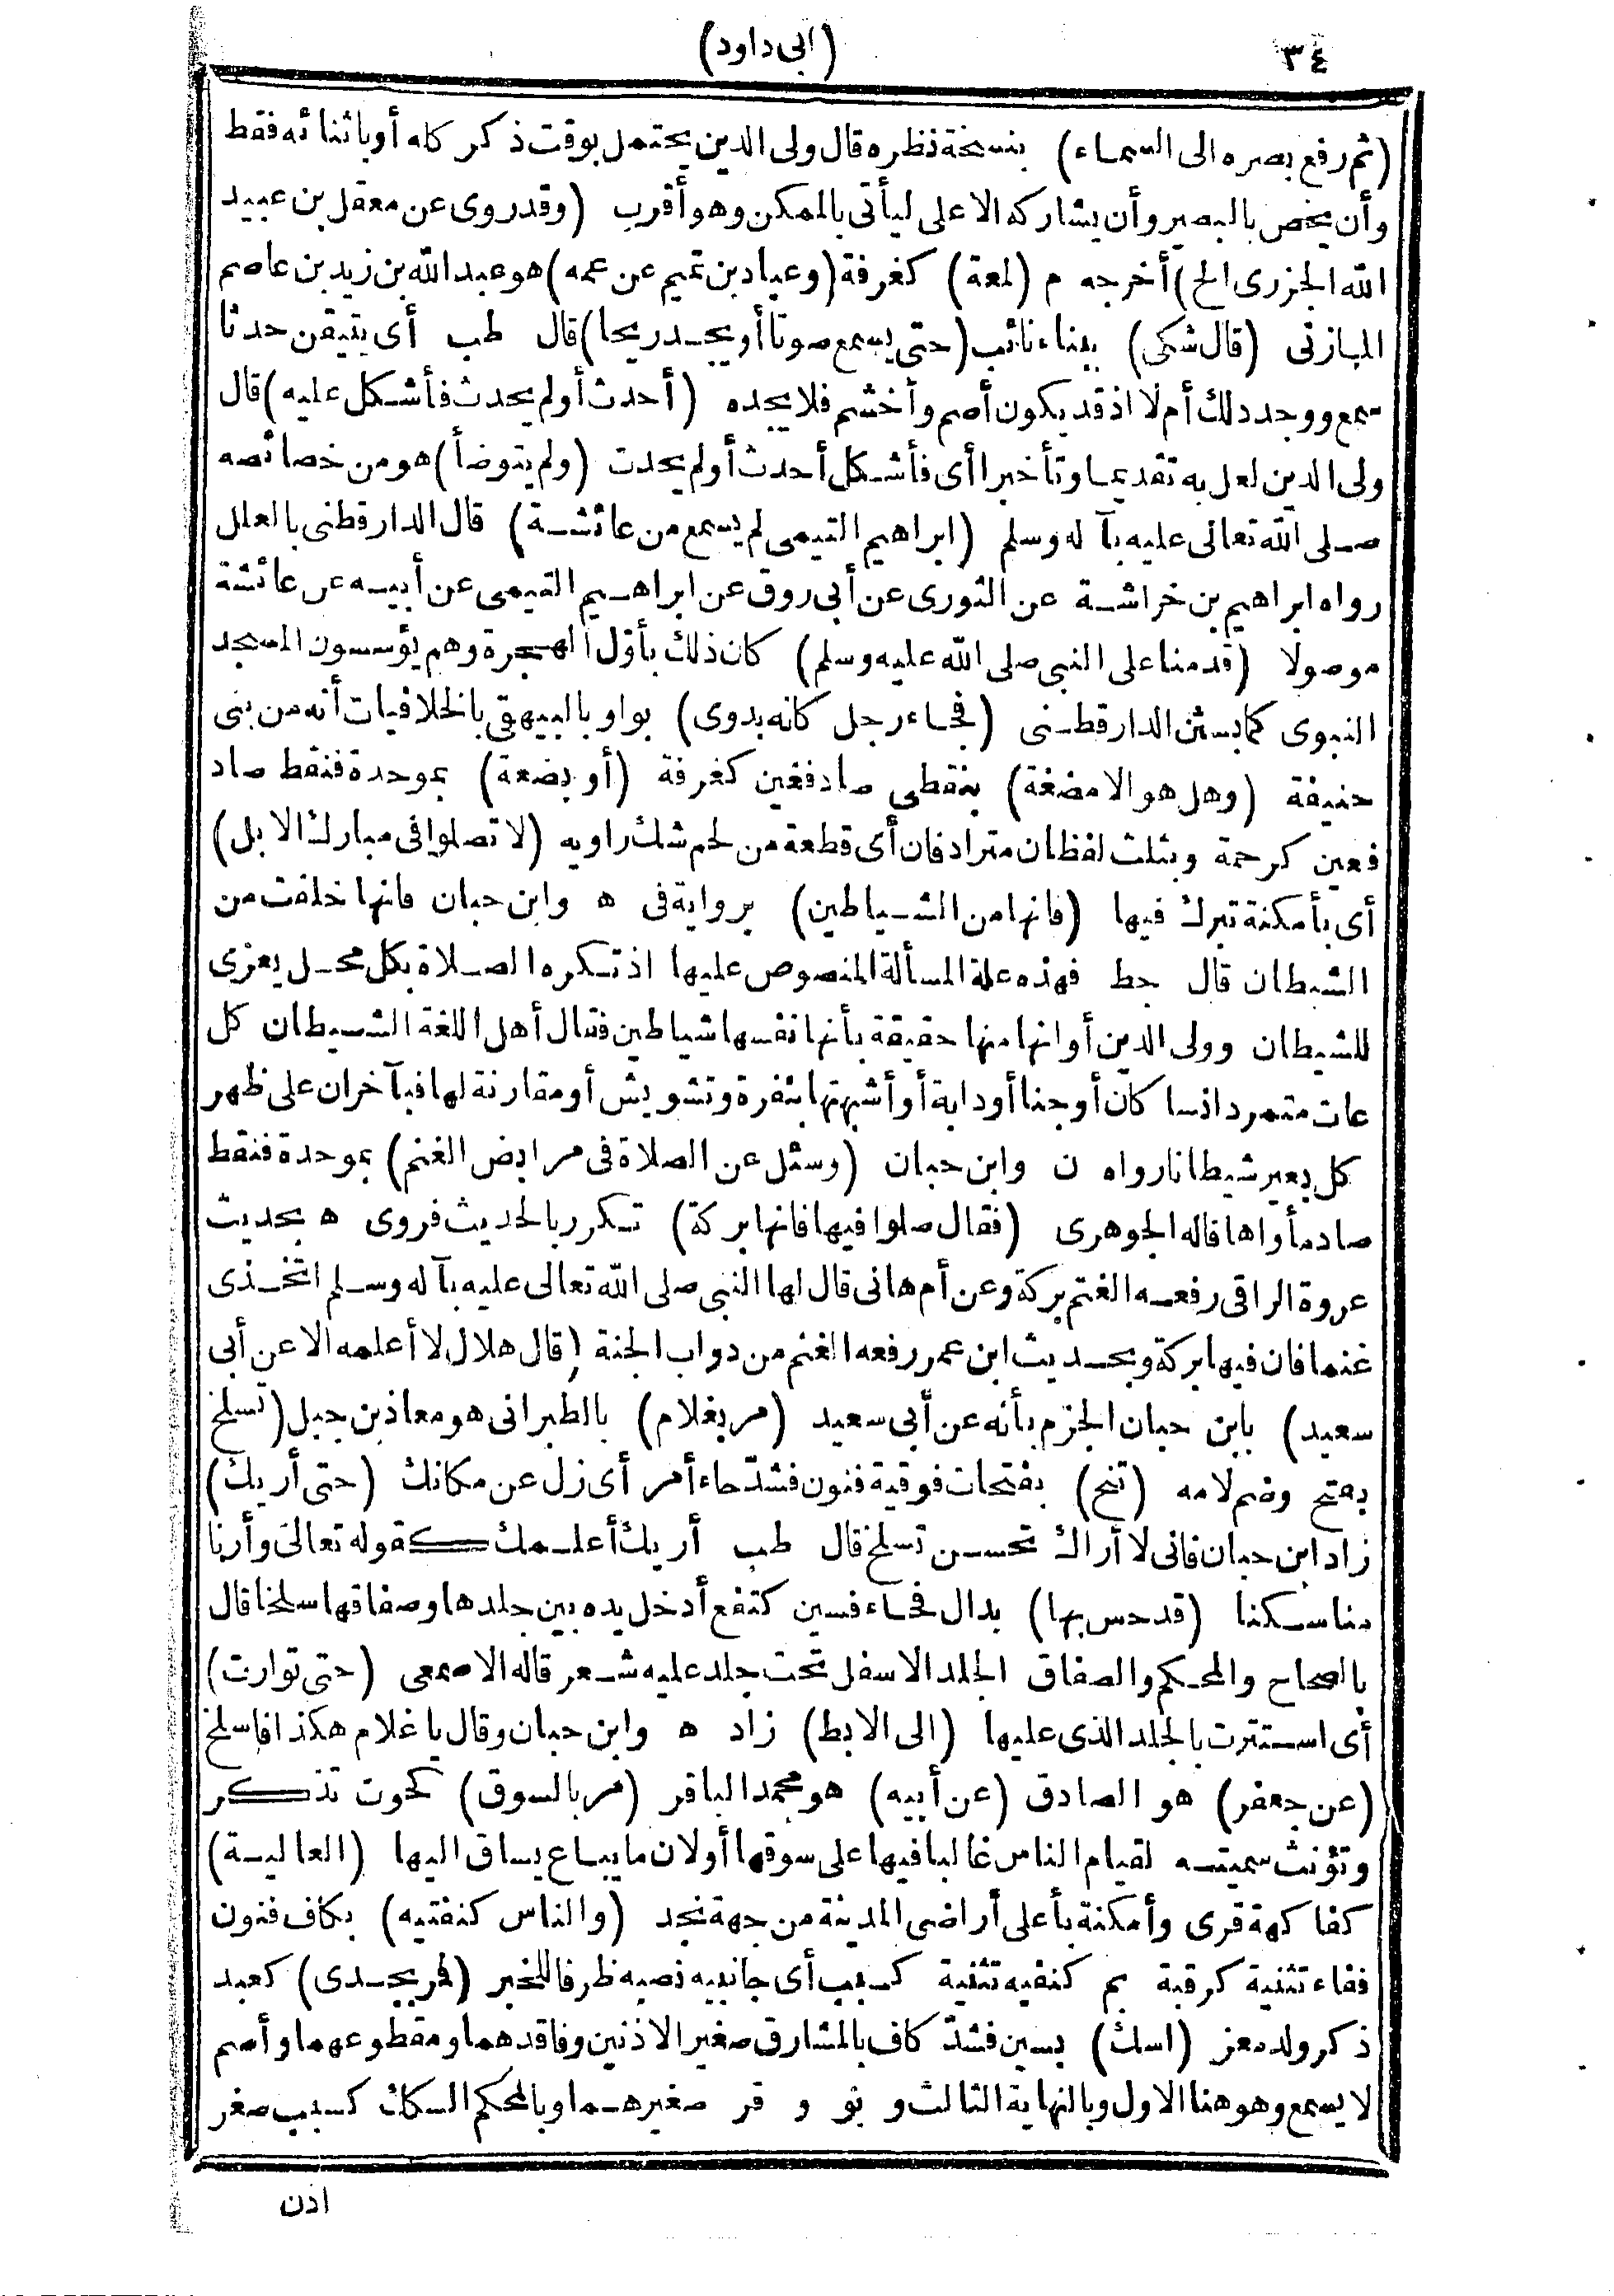 ٣٤
(ابى داود)
(ثم رفع بصره الى السماء) بنسخة نظره قال ولى الدين يحتمل بوقت ذكر كله أو باثنائه فقط
وأن يخص بالبصير وأن يشاركه الاعلى ليأتى بالممكن وهو أقرب (وقد روى عن معقل بن عبيد
الله الجزرى الخ) أخرجه م (لمعة) كغرفة (وعباد بن تميم عن عمه) هو عبد الله بن زيد بن عاصم
المازنى (قال شكى) ببناء نائب (حتى يسمع صوتا أو يجد ريحا) قال طب أى يتيقن حدثا
سمع ووجد ذلك أم لا اذ قد يكون أصم وأخشم فلا يجده (أحدث أو لم يحدث فأشكل عليه) قال
ولى الدين لعل به تقديما وتأخيرا أى فأشكل أحدث أو لم يحدث (ولم يتوضأ) هو من خصائصه
صلى الله تعالى عليه بآله وسلم (ابراهيم التيمى لم يسمع من عائشة) قال الدارقطنى بالعلل
رواه ابراهيم بن خراشة عن الثورى عن أبى روق عن ابراهيم التيمى عن أبيه عن عائشة
موصولا (قدمنا على النبى صلى الله عليه وسلم) كان ذلك بأوّل الهجرة وهم يؤسسون المسجد
النبوى كما بسنن الدارقطنى (فجاء رجل كانه بدوى) بواو بالبيهقى بالخلافيات أنه من بنى
حنيفة (وهل هو الا مضغة) بنقطى ضاد فغين كغرفة (أو بضعة) بموحدة فنقط ضاد
فعين كرحمة ويثلث لفظان مترادفان أى قطعة من لحم شك راويه (لا تصلوا فى مبارك الابل)
أى بأمكنة تبرك فيها (فانها من الشياطين) برواية فى ه وابن حبان فانها خلقت من
الشيطان قال حط فهذه علة المسألة المنصوص عليها اذ تكره الصلاة بكل محل يعزى
للشيطان وولى الدين أو انها منها حقيقة بأنها نفسها شياطين فقال أهل اللغة الشيطان كل
عات متمرد انسا كان أو جنا أو دابة أو أشبهتها بنفرة وتشويش أو مقارنة لها فبآخر ان على ظهر
كل بعير شيطانا رواه ن وابن حبان (وسئل عن الصلاة فى مرابض الغنم) بموحدة فنقط
ضاد مأواها قاله الجوهرى (فقال صلوا فيها فانها بركة) تكرر بالحديث فروى ه بحديث
عروة الراقى رفعه الغنم بركة وعن أم هانى قال لها النبى صلى الله تعالى عليه بآله وسلم اتخذى
غنما فان فيها بركة وبحديث ابن عمر رفعه الغنم من دواب الجنة (قال هلال لا أعلمه الا عن أبى
سعيد) بابن حبان الجزم بأنه عن أبى سعيد (مر بغلام) بالطبرانى هو معاذ بن جبل (تسلخ
بفتح وضم لامه (تنح) بفتحات فوقية فنون فشدّ حاء أمر أى زل عن مكانك (حتى أريك)
زاد ابن حبان فانى لا أراك تحسن تسلخ قال طب أريك أعلمك كقوله تعالى وأرنا
مناسكنا (قد حس بها) بدال فحاء فسين كتفع أدخل يده بين جلدها وصفاقها سلخا قال
بالصحاح والمحكم والصفاق الجلد الاسفل تحت جلد عليه شعر قاله الاصمعى (حتى توارت)
أى استترت بالجلد الذى عليها (الى الابط) زاد ه وابن حبان وقال يا غلام هكذا فاسلخ
(عن جعفر) هو الصادق (عن أبيه) هو محمد الباقر (مر بالسوق) كحوت تذكر
وتؤنث سميته لقيام الناس غالبا فيها على سوقها أو لان ما يباع يساق اليها (العالية)
كفاكهة قرى وأمكنة بأعلى أراضى المدينة من جهة نجد (والناس كنفتيه) بكاف فنون
ففاء تثنية كرقبة بم كنفيه تثنية كسبب أى جانبيه نصبه ظرفا للخبر (فمر بجدى) كعبد
ذكر ولد معز (اسك) بسين فشدّ كاف بالمشارق صغير الاذنين وفاقدهما ومقطوعهما وأصم
لا يسمع وهو هنا الاول وبالنهاية الثالث و نو و قر صغيرهما وبالمحكم السكك كسبب صغر
اذن